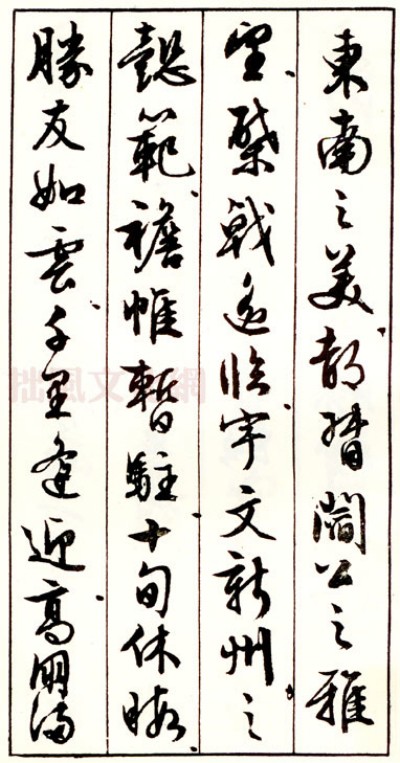 東南之美都督閻公之雅
望棨戟遙臨宇文新州之
懿範襜帷暫駐十旬休暇
勝友如雲千里逢迎高朋滿
拙風文化網